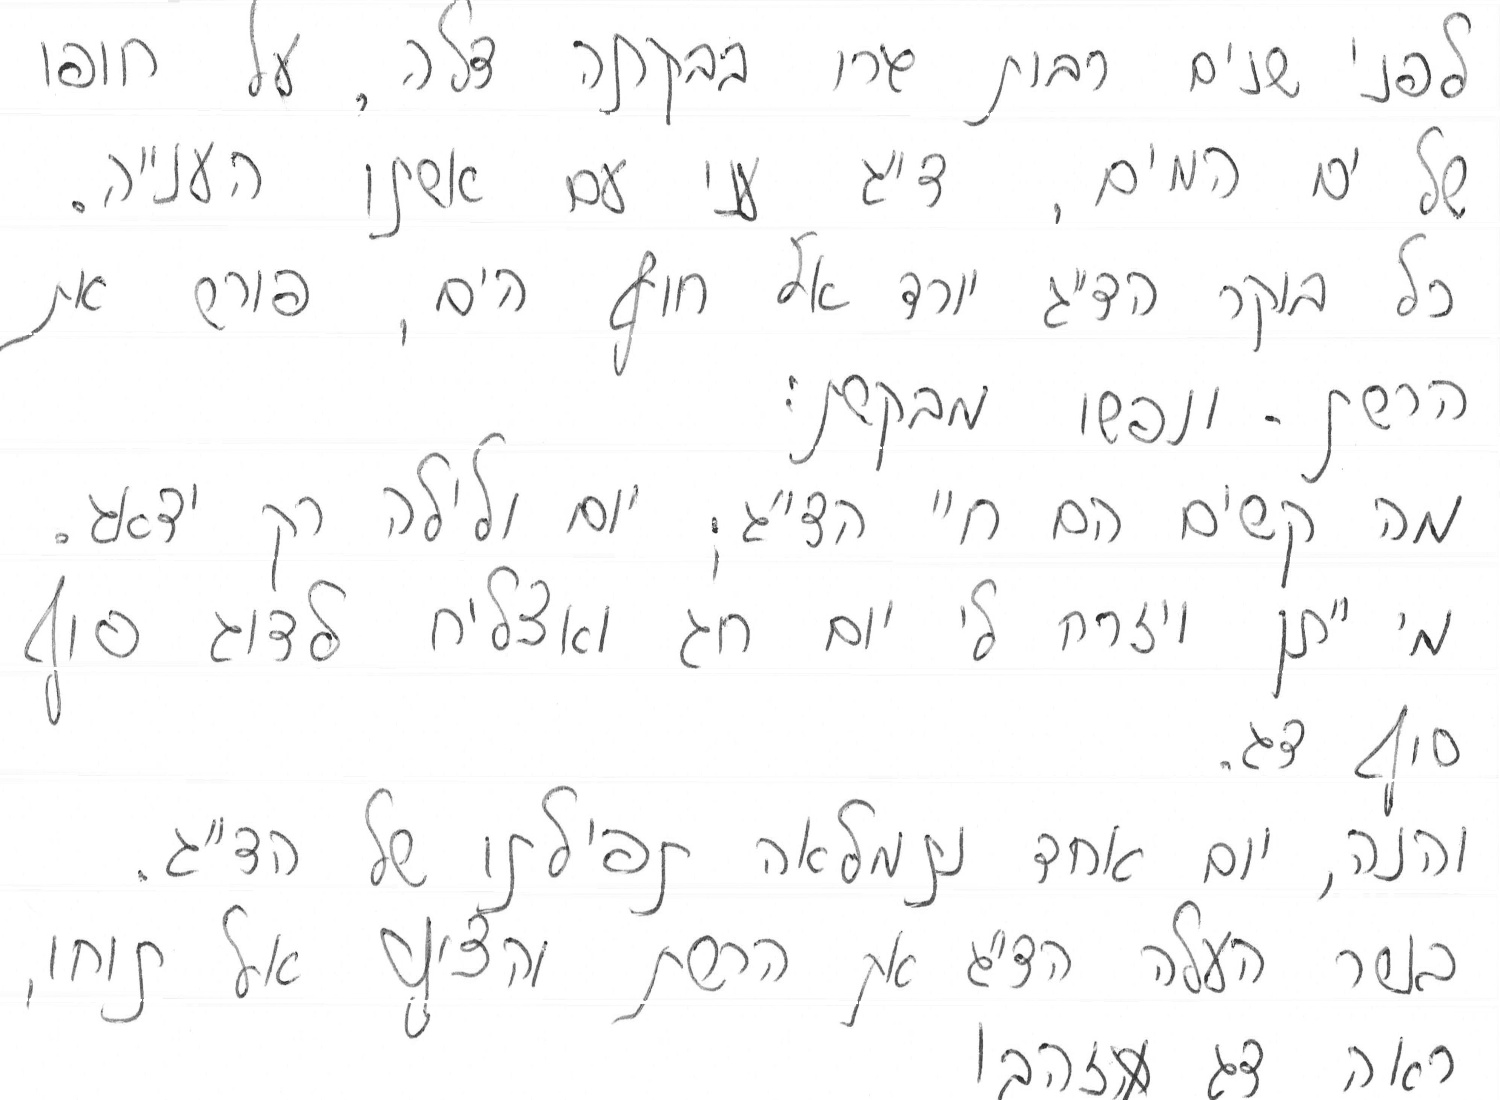 לפני שנים רבות גרו בבקתה דלה, על חופו
של ים המים, דייג עני עם אשתו הענייה.
כל בוקר הדייג יורד אל חוף הים, פורש את
הרשת - ונפשו מבקשת:
מה קשים הם חיי הדייג; יום ולילה רק ידאג.
מי ייתן ויזרח לי יום חג ואצליח לדוג סוף
סוף דג.
והנה, יום אחד נתמלאה תפילתו של הדייג.
כאשר העלה הדייג את הרשת והציץ אל תוכו,
ראה דג הזהב!